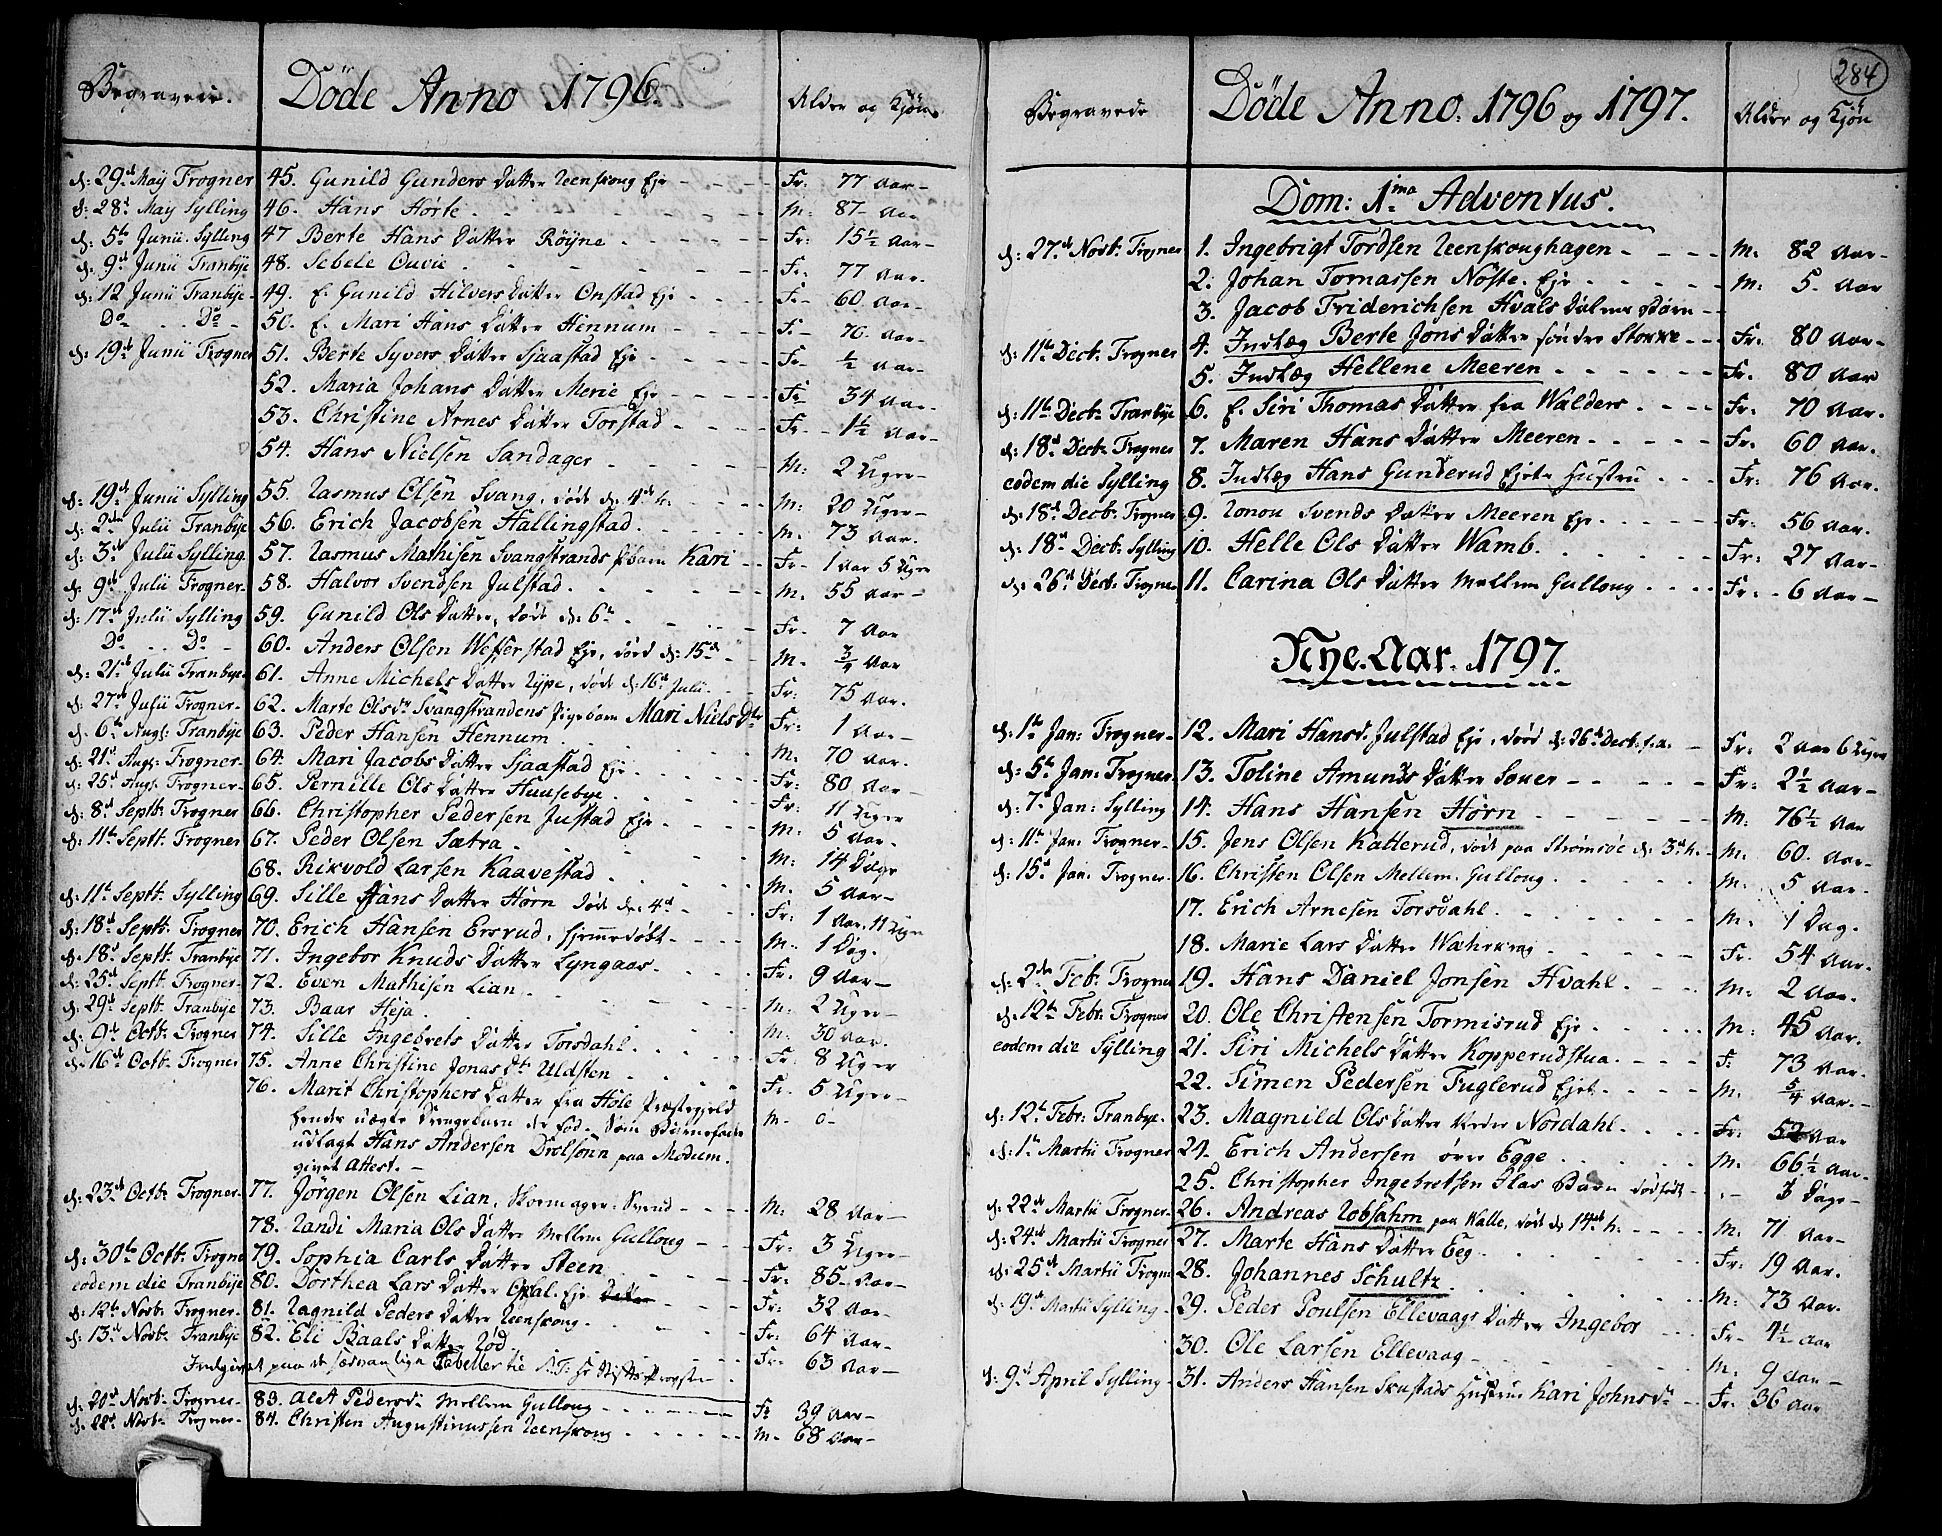 284
Begravede. Døde Anno 1796. Alder og Kjøn.
d: 29de May Frogner 45. Gunild Gunders Datter Reenskoug Eje Fr. 77 Aar
d: 28de May Sylling 46. Hans Hørte M: 87 Aar
d: 5te Junii Sylling 47 Berte Hans Datter Røyne Fr: 15½ Aar
d: 9de Junii Tranbye 48. Sebele Ouvie Fr. 77 Aar
d: 12 Junii Tranbye 49. E. Gunild Hilvers Datter Onstad Eje Fr 60 Aar
Do Do 50. E. Mari Hans Datter Hennum Fr. 70 Aar
d: 19de Junii Frogner 51. Berte Syvers Datter Sjaastad Eje Fr ½ Aar
52. Maria Johans Datter Merie Eje Fr 34 Aar
53. Christine Arnes Datter Torstad Fr 1½ Aar
54. Hans Nielsen Sandager M: 2 Uger
d: 19de Junii Sylling 55. Rasmus Olsen Svang, død d. 11te h. M: 20 Uger
d: 2den Julii Tranbye 56. Erich Jacobsen Hallingstad. M. 73 Aar.
d: 3de Julii Sylling 57. Rasmus Mathisen Svangstrands Barn Kari Fr 1 Aar 5 Uger
d: 9de Julii Frogner 58. Halvor Svendsen Julstad. M. 55 Aar
d: 17de Julii Sylling 59. Gunild Ols Datter, døde d: 6te Fr. 7 Aar
Do Do 60. Anders Olsen Wefferstad Eje, død d: 15de M. ¾ Aar
d: 21de Julii Tranbye 61. Anne Michels Datter Rype, død d: 16de Julii. Fr: 75 Aar.
d: 27de Julii Frogner 62. Marte Olsdr Svangstrandens Pigebarn Mari Niels Dtr Fr: 1 Aar
d. 6te Augs: Tranbye 63. Peder Hansen Hennum M: 70 Aar.
d: 21de Augs: Frogner 64. Mari Jacobs Datter Sjaastad Eje Fr: 80 Aar
d: 25de Augs: Frogner 65. Pernille Ols Datter Huusebye Fr: 11 Uger
d: 8de Septb: Frogner 66. Christopher Pedersen Justad Eje M: 5 Aar.
d: 11te Septb: Frogner 67. Peder Olsen Sætra M: 14 Dage
68. Rikvold Larsen Kaavestad M. 5 Aar
d: 11te Septb: Sylling 69. Sille Hans Datter Hørn død d: 4de Fr: 1 Aar. 11 Uger
d: 18de Septb: Frogner 70. Erich Hansen Ersrud, hjemmedøbt M: 1 Dag.
d: 18de Septb: Tranbye 71. Ingebor Knuds Datter Lyngaas Fr: 9 Aar
d: 25de Septb: Frogner 72. Even Mathisen Lian M: 2 Uger
d: 29de Septb: Tranbye 73. Baar Heja M: 30 Aar.
d: 9de Octb: Frogner 74. Sille Ingebrets Datter Torsdahl Fr 8 Uger
d: 16de Octb: Frogner 75. Anne Christine Jonas Dtr Uldsten Fr. 5 Uger
76. Marit Christophers Datter fra Hole Præstegjeld M. 0
hendes uægte Drengebarn død fød. Som Barnefader
udlagt Hans Andersen Drolsønn paa Modum.
givet Attest.
d: 23de Octb: Frogner 77. Jørgen Olsen Lian, Skomager-Svend M: 28 Aar
78. Randi Maria Ols Datter Mellem Gulloug Fr: 3 Uger
d: 30te Octb: Frogne 79. Sophia Carls Datter Steen Fr: 85 Aar
eodem die Tranbye 80. Dorthea Lars Datter Eje Fr: 32 Aar
d: 12te Novb: Frogner 81. Ragnild Peders Datter Reenskoug. Fr: 64 Aar
d: 13de Novb: Tranbye 82. Eli Baals Datter Rød Fr: 63 Aar
Indgivet paa de sædvanlige Tabeller til Hr Stiftsprovsten
d: 20de Novb: Frogner 83. Alet Pedersd. Mellem Gulloug Fr 39 Aar
d: 22de Novb: Frogner 84. Christen Augustinussen Reenskoug M. 68 Aar
Begravede Døde Anno. 1796 og 1797. Alder og Kjøn
Dom: 1ma Adventus.
d: 27de Novb: Frogner 1. Ingebrigt Tordsen Reenskoughagen M. 82 Aar
2. Johan Tomassen Nøste. Eje M: 5 Aar
3. Jacob Friderichsen Hvals Dødfødt Barn
d: 11te Decb: Frogner 4. Indlæg Berte Jons Datter søndre Stokke Fr: 80 Aar
5. Indlæg Hellene Meeren Fr. 80 Aar
d: 11te Decb: Tranbye 6. E. Siri Thomas Datter fra Walders Fr: 70 Aar.
d: 18de Decb: Frogner 7. Maren Hans Datter Meeren Fr: 60 Aar.
eodem die Sylling 8. Indlæg Hans Gunderud Ejets Hustru Fr: 76 Aar.
d: 18de Decb: Frogner 9. Ronou Svends Datter Meeren Eje. Fr: 56 Aar.
d: 18de Decb: Sylling 10. Helle Ols Datter Wamb. Fr: 27 Aar
d: 26de Decb: Frogner 11. Carina Ols Datter Mellem Gulloug Fr: 6 Aar
Nye-Aar. 1797.
d: 1te Jan: Frogner 12. Mari Hansd. Julstad Eje, død d: 26de Decb: f.a. Fr: 2 Aar 6 Uger
d: 5te Jan: Frogner 13. Toline Amunds Datter Souer Fr: 2½ Aar
d: 7de Jan: Sylling 14. Hans Hansen Hørn M: 76½ Aar
d: 11te Jan: Frogner 15. Jens Olsen Katterud, død paa Strømsøe d: 3de h. M: 60 Aar
d: 15de Jan: Frogner 16. Christen Olsen Mellem Gulloug M: 5 Aar.
17. Erich Arnesen Torsdahl M: 1 Dag.
18. Marie Lars Datter Wahrkrog Fr: 54 Aar.
d: 2den Feb: Frogner 19. Hans Daniel Jonsen Hvahl M: 2 Aar.
d: 12te Febr: Frogner 20. Ole Christensen Tormisrud Eje M: 45 Aar.
eodem die Sylling 21. Siri Michels Datter Kopperudstua Fr 73 Aar.
22. Simen Pedersen Fuglerud Ejet M: 5/4 Aar.
d: 12te Febr: Tranbye. 23. Magnild Ols Datter Nordahl Fr: 52 Aar
d: 1te Martii Frogner 24. Erich Andersen øvre Egge M: 66½ Aar
25. Christopher Ingebretsen Barn dødfødt 3 Dage
d: 22de Martii Frogner 26. Andreas Robsahm paa Walle, død d. 14de h. M: 71 Aar
d: 24de Martii Frogner 27. Marte Hans Datter Eeg Fr: 19 Aar.
d: 25de Martii Frogn 28. Johannes Schultz M: 73 Aar.
d: 19de Martii Sylling 29. Peder Poulsen Ellevaags Datter Ingebor Fr 4½ Aar
30. Ole Larsen Ellevaag M. 9 Aar
d: 9de April Sylling 31. Anders Hansen Skustads Hustrue Kari Johnsdr Fr: 36 Aar